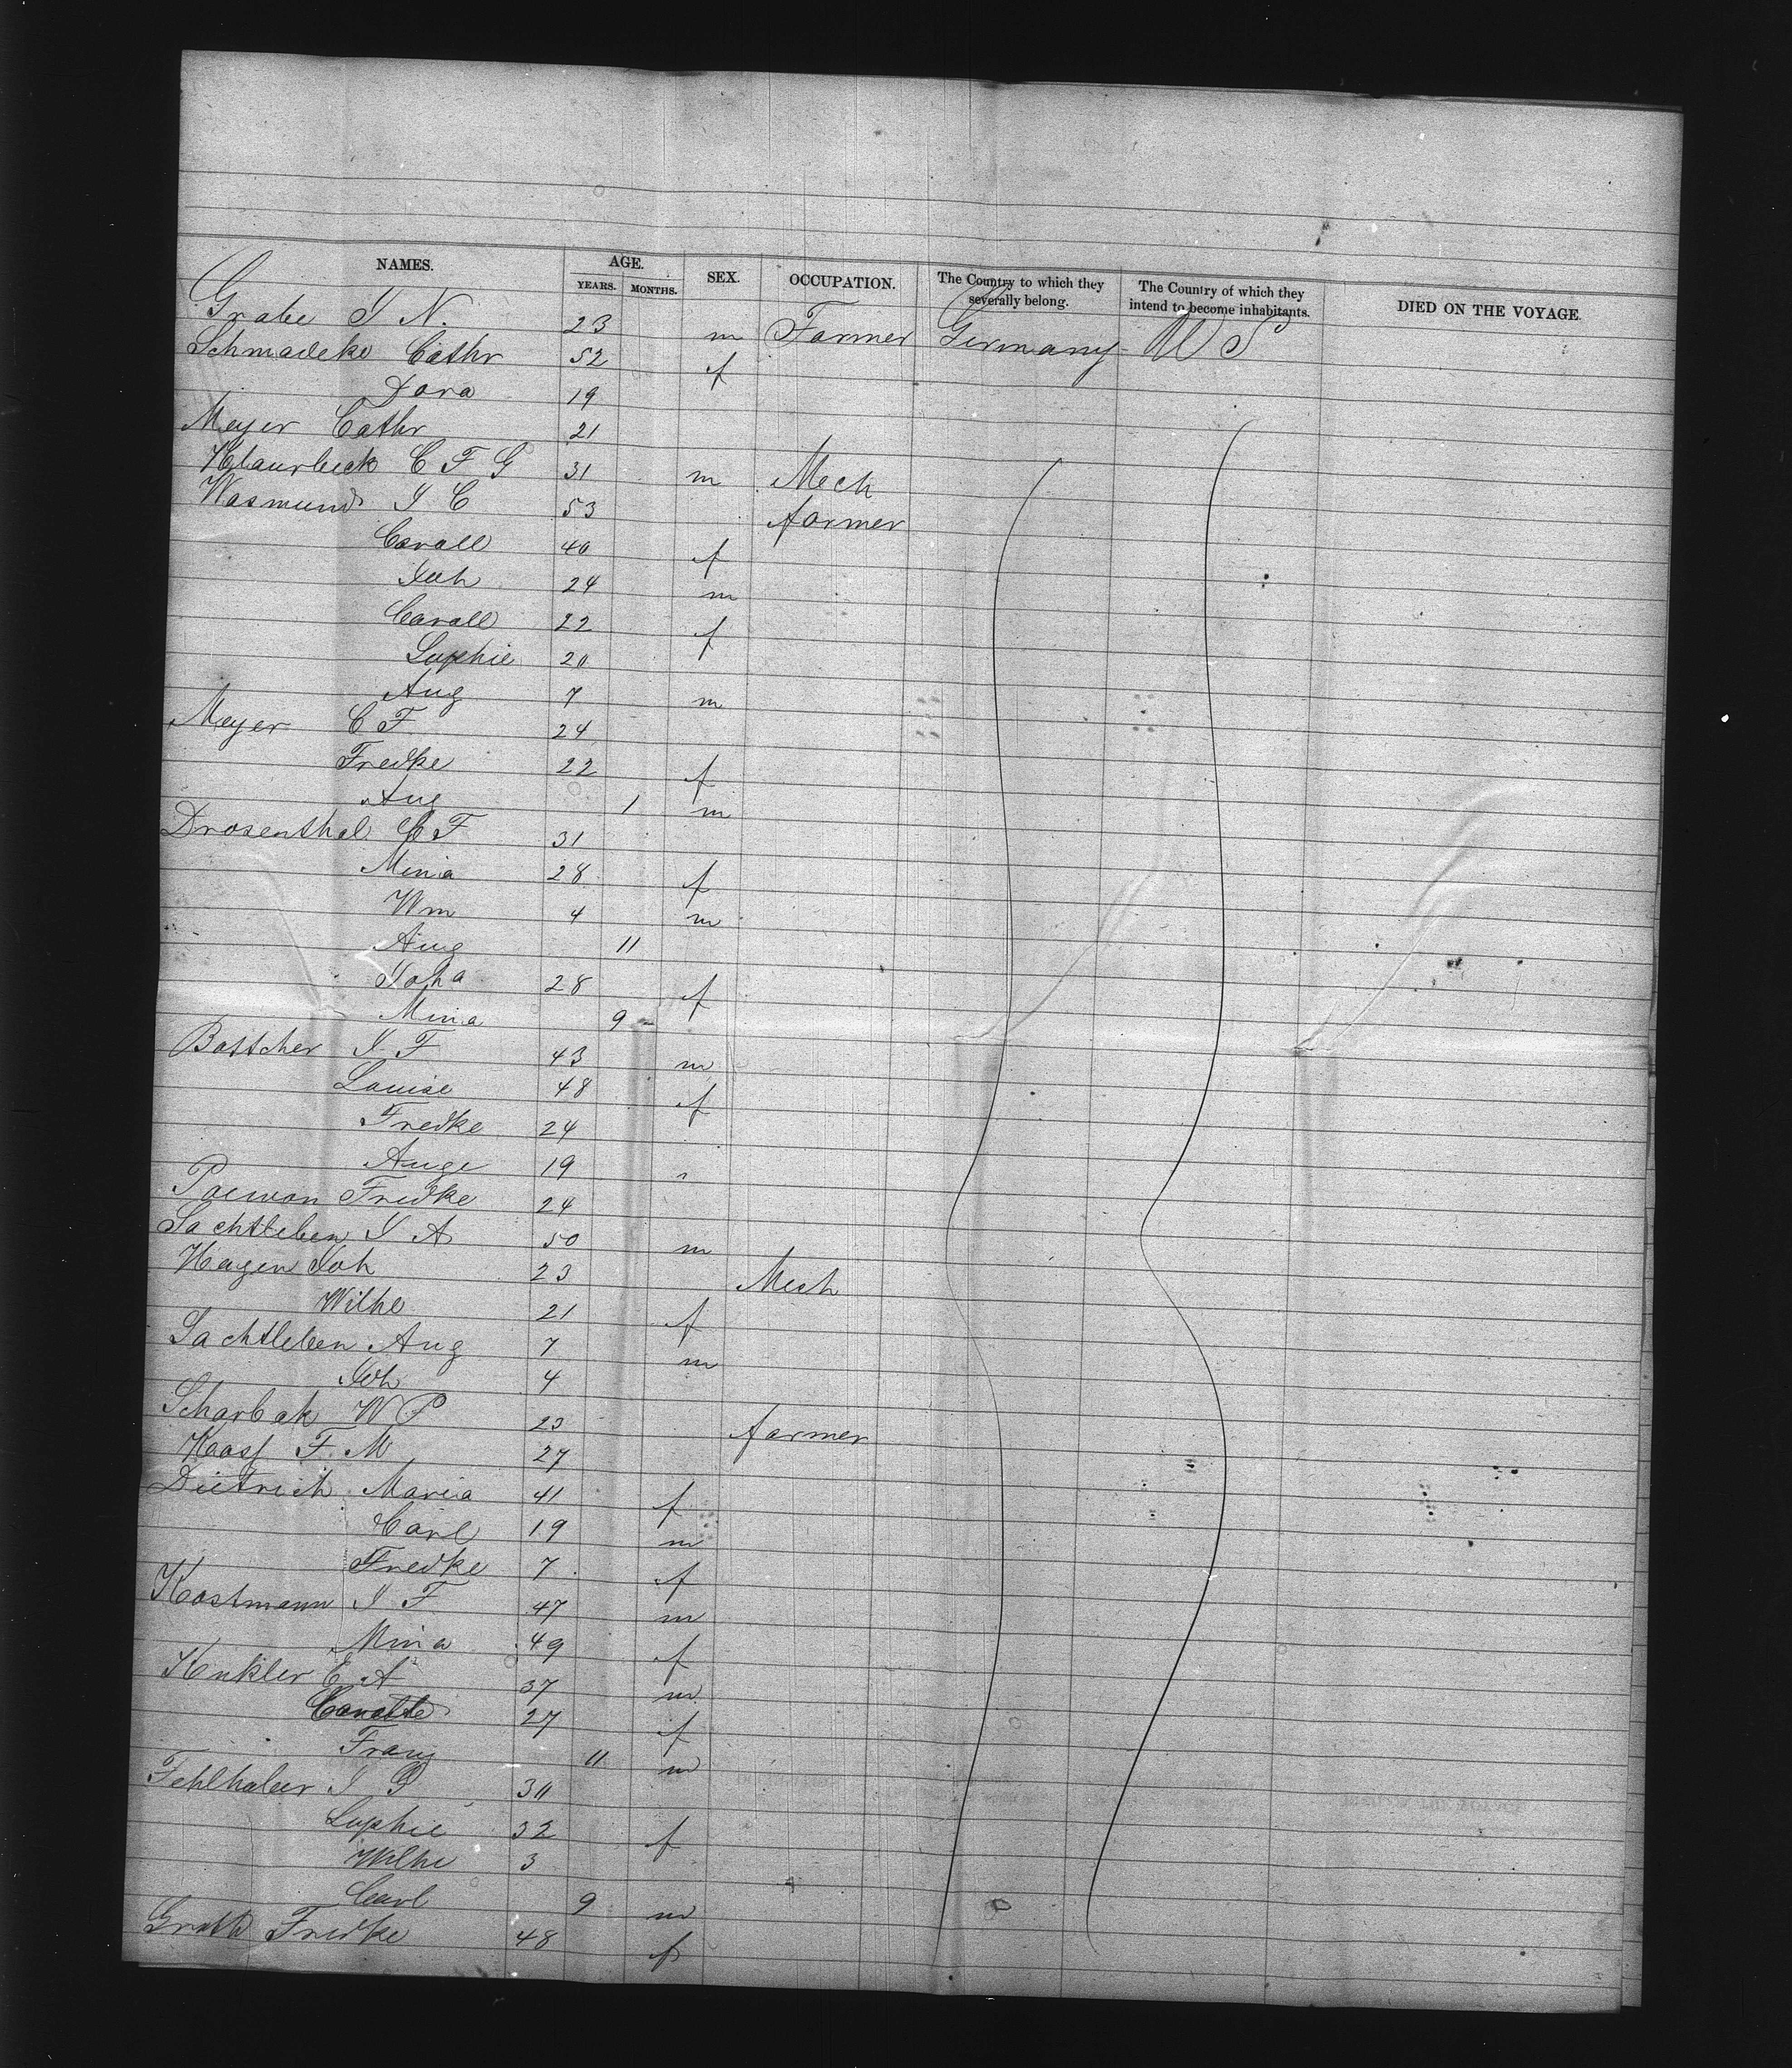 NAMES. AGE. SEX. OCCUPATION. The Country to which they severally belong. The Country of which they intend to become inhabitants. DIED ON THE VOYAGE.
YEARS. MONTHS.
Grabe J N. 23 m Farmer Germany U S
Schmadeke Cathr 52 f
Dora 19
Meyer Cathr 21
C F G 31 m Mech
Wasmund J C 53 farmer
Caroll 40 f
Joh 24 m
Caroll 22 f
Sophie 20
Aug 7 m
Meyer C F 24
Fredke 22 f
Aug 1 m
Drosenthal C F 31
Mina 28 f
Wm 4 m
Aug 11
Joha 28 f
Mina 9
Bottcher J F 43 m
Louise 48 f
Fredke 24
Auge 19 "
Fredke 24
Sachtleben J A 50 m
Hagen Joh 23 Mech
Wilhe 21 f
Sachtleben Aug 7 m
Joh 4
Scharbak W P 23 farmer
F M 27
Dietrich Maria 41 f
Carl 19 m
Fredke 7 f
Kostmann J F 47 m
Mina 49 f
Kunkler E A 37 m
27 f
Franz 11 m
Fehlhaber J G 30
Sophie 32 f
Wilhe 3
Carl 9 m
Groth Fredke 48 f